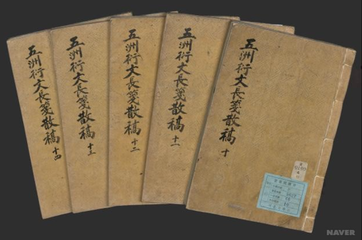 五洲衍文長箋散稿 十
五洲衍文長箋散稿 十一
五洲衍文長箋散稿 十二
五洲衍文長箋散稿 十三
五洲衍文長箋散稿 十四
NAVER